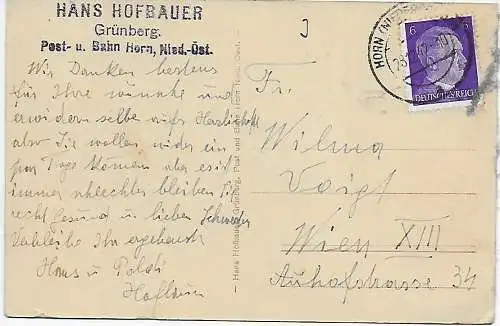 HANS HOFBAUER
Grünberg.
Post- u. Bahn Horn, Nied.-Öst.
Wir Danken bestens
für Ihre Wünsche und
erwidern selbe aufs Herzlichste
also Sie wollen wieder ein
par Tage kommen aber es ist
immer schlechter bleiben Sie
recht gesund u lieben Schwester
Verbleibe Ihr ergebenst
Hans u Poldi
Hofbauer
J
Fr.
Wilma
Voigt
Wien XIII
Auhofstrasse 34
HORN (NIEDER
6
DEUTSCHES REICH
Hans Hofbauer, Grünberg, Post und Bahn Horn